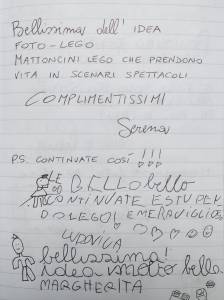 Bellissima dell' IDEA
FOTO-LEGO
MATTONCINI LEGO CHE PRENDONO
VITA IN SCENARI SPETTACOLI
COMPLIMENTISSIMI
Serena
P.S. CONTINUATE COSÍ !!!
BELLO bello
CONTINUATE ESTUPEN
DO LEGO! E MERAVIGLIOS
LUDOVICA
bellissima!
idea molto bella
MARGHERITA